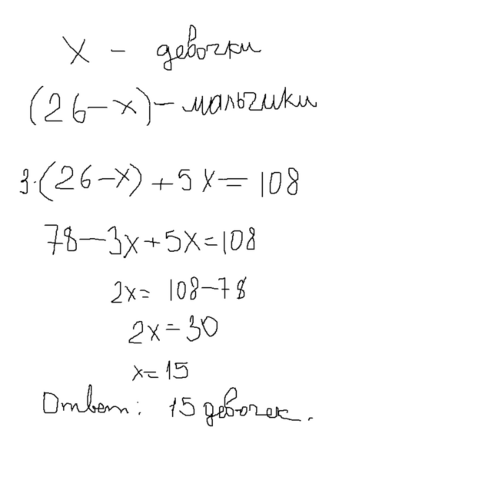 x - девочки
(26-x)- мальчики
3·(26-x)+5x=108
78-3x+5x=108
2x= 108-78
2x=30
x=15
Ответ: 15 девочек.